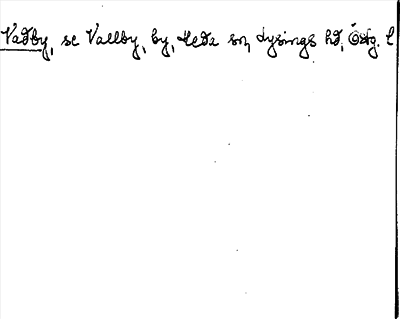 Vadby, se Vallby, by, Heda sn, Lysings hd, Östg. l